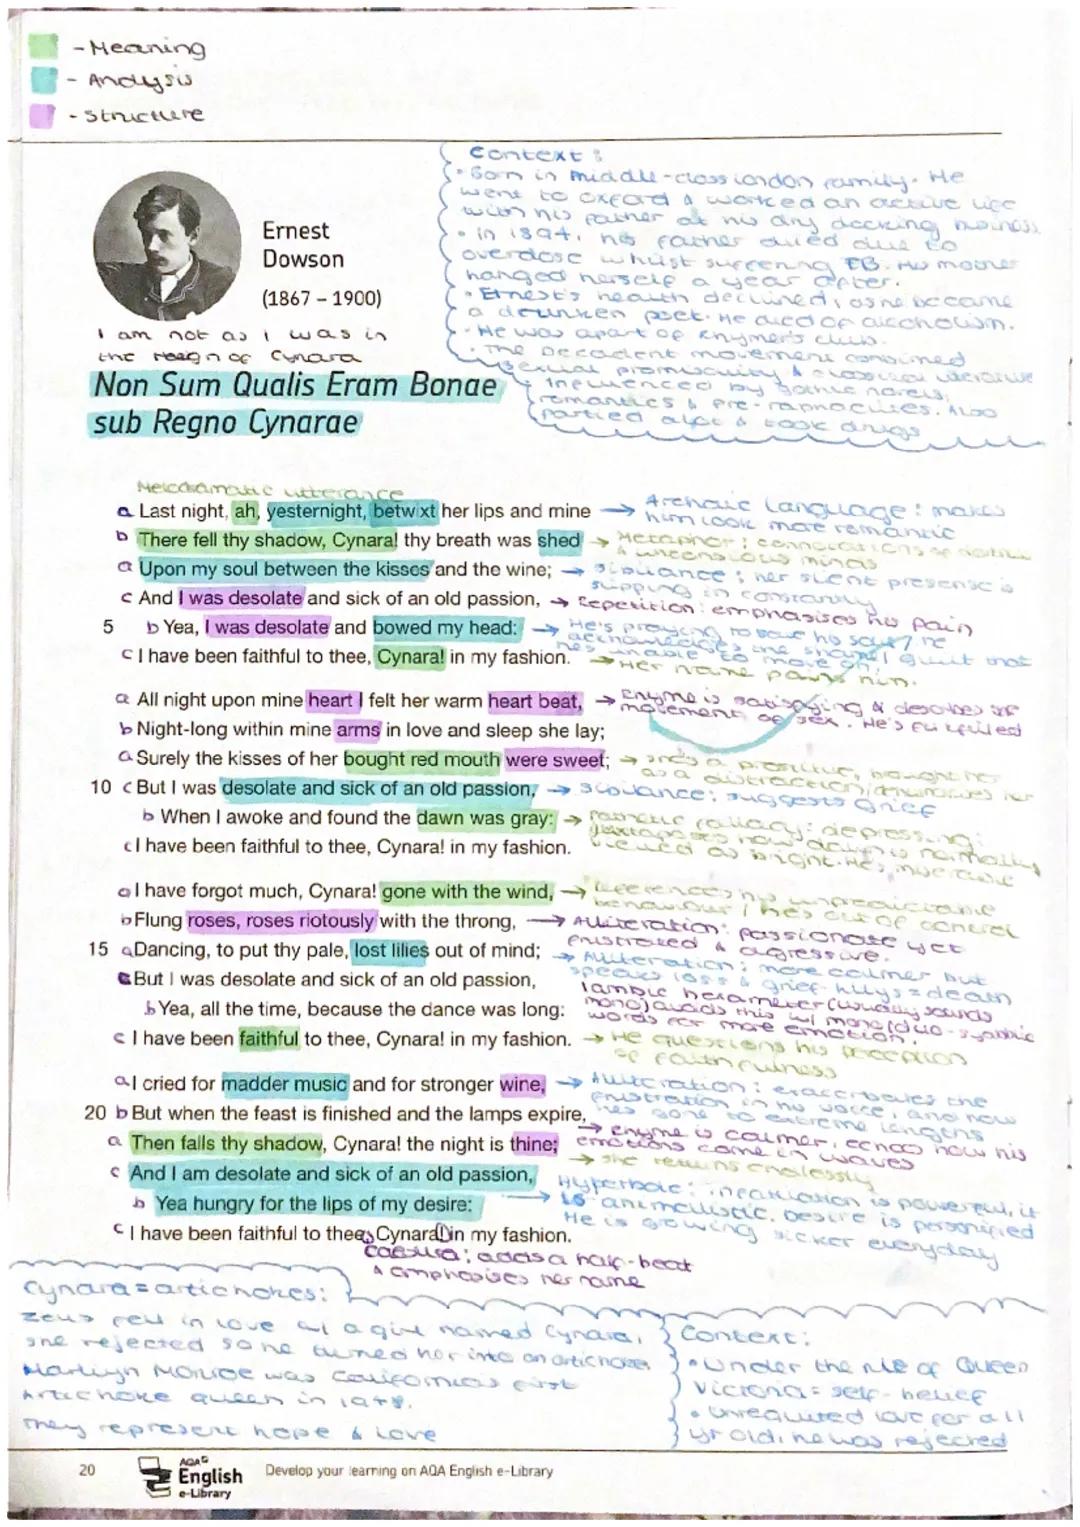 - Meaning
- Analysis
- Structure
Context:
• Born in middle-class london family. He
went to oxford & worked an active life
with his father at his dry docking business
• in 1894, his father died due to
overdose whilst suffering TB. His mother
hanged herself a year after.
• Ernest's health declined, as he became
a drunken poet. He died of alcoholism.
• He was apart of rhymer's club.
• The Decadent movement combined
sexual promiscuity & classical literature
influenced by gothic novels,
romantics & pre-raphaelites. Also
partied alot & took drugs
Ernest
Dowson
(1867 – 1900)
I am not as I was in
the reign of Cynara
Non Sum Qualis Eram Bonae
sub Regno Cynarae
Melodramatic utterance
a Last night, ah, yesternight, betwixt her lips and mine → Archaic language: makes
him look more romantic
b There fell thy shadow, Cynara! thy breath was shed → Metaphor: connotations of
& unconscious minds
a Upon my soul between the kisses and the wine; → sibilance: her silent presense is
slipping in constantly
c And I was desolate and sick of an old passion, → Repetition: emphasises his pain
5 b Yea, I was desolate and bowed my head: → He's praying to save his soul / he
acknowledges the shame / guilt that
he's unable to move on
c I have been faithful to thee, Cynara! in my fashion. → Her name pains him.
a All night upon mine heart I felt her warm heart beat, → Rhyme is satisfying & describes
movement of sex. He's fulfilled
b Night-long within mine arms in love and sleep she lay;
a Surely the kisses of her bought red mouth were sweet; → she's a prostitute, bought her
as a distraction/
10 c But I was desolate and sick of an old passion, → sibilance: suggests grief
b When I awoke and found the dawn was gray: → Pathetic fallacy: depressing:
juxtaposes how dawn is normally
viewed as bright. He's miserable
c I have been faithful to thee, Cynara! in my fashion.
a I have forgot much, Cynara! gone with the wind, → References his unpredictable
behaviour / he's out of control
b Flung roses, roses riotously with the throng, → Alliteration: Passionate yet
frustrated & aggressive.
15 a Dancing, to put thy pale, lost lilies out of mind; → Alliteration: more calmer but
speaks loss & grief - lillys = death
c But I was desolate and sick of an old passion,
Iambic hexameter (usually sounds
b Yea, all the time, because the dance was long:
mono) avoids this w/ mono/duo-syllabic
words for more emotion.
c I have been faithful to thee, Cynara! in my fashion. → He questions his perception
of faithfulness
a I cried for madder music and for stronger wine, → Alliteration: exacerbates the
frustration in his voice, and how
he's gone to extreme lengths
20 b But when the feast is finished and the lamps expire,
→ rhyme is calmer, echos how his
emotions come in waves
a Then falls thy shadow, Cynara! the night is thine;
→ she returns endlessly
c And I am desolate and sick of an old passion,
Hyperbole: infatuation is powerful, it
b Yea hungry for the lips of my desire: → is animalistic. Desire is personified
He is growing sicker everyday
c I have been faithful to thee, Cynara! in my fashion.
Caesura: adds a half-beat
& emphasises her name
Cynara = artichokes:
Zeus fell in love w/ a girl named Cynara,
she rejected so he turned her into an artichoke.
Marliyn Monroe was California's first
Artichoke queen in 1948.
They represent hope & love
Context:
• Under the rule of Queen
Victoria = self-belief
• Unrequited love for a 11
yr old; he was rejected
20
AQA
English
e-Library
Develop your learning on AQA English e-Library